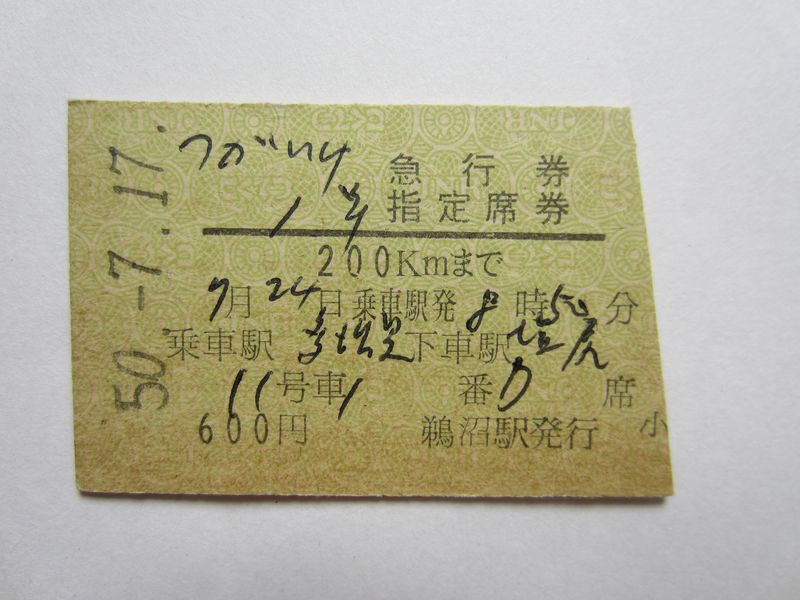 50.-7.17.
つがいけ 急行券
1号 指定席券
200Kmまで
7月24日乗車駅発8時50分
乗車駅 多治見 下車駅 塩尻
11号車 1番D席
600円 鵜沼駅発行 小